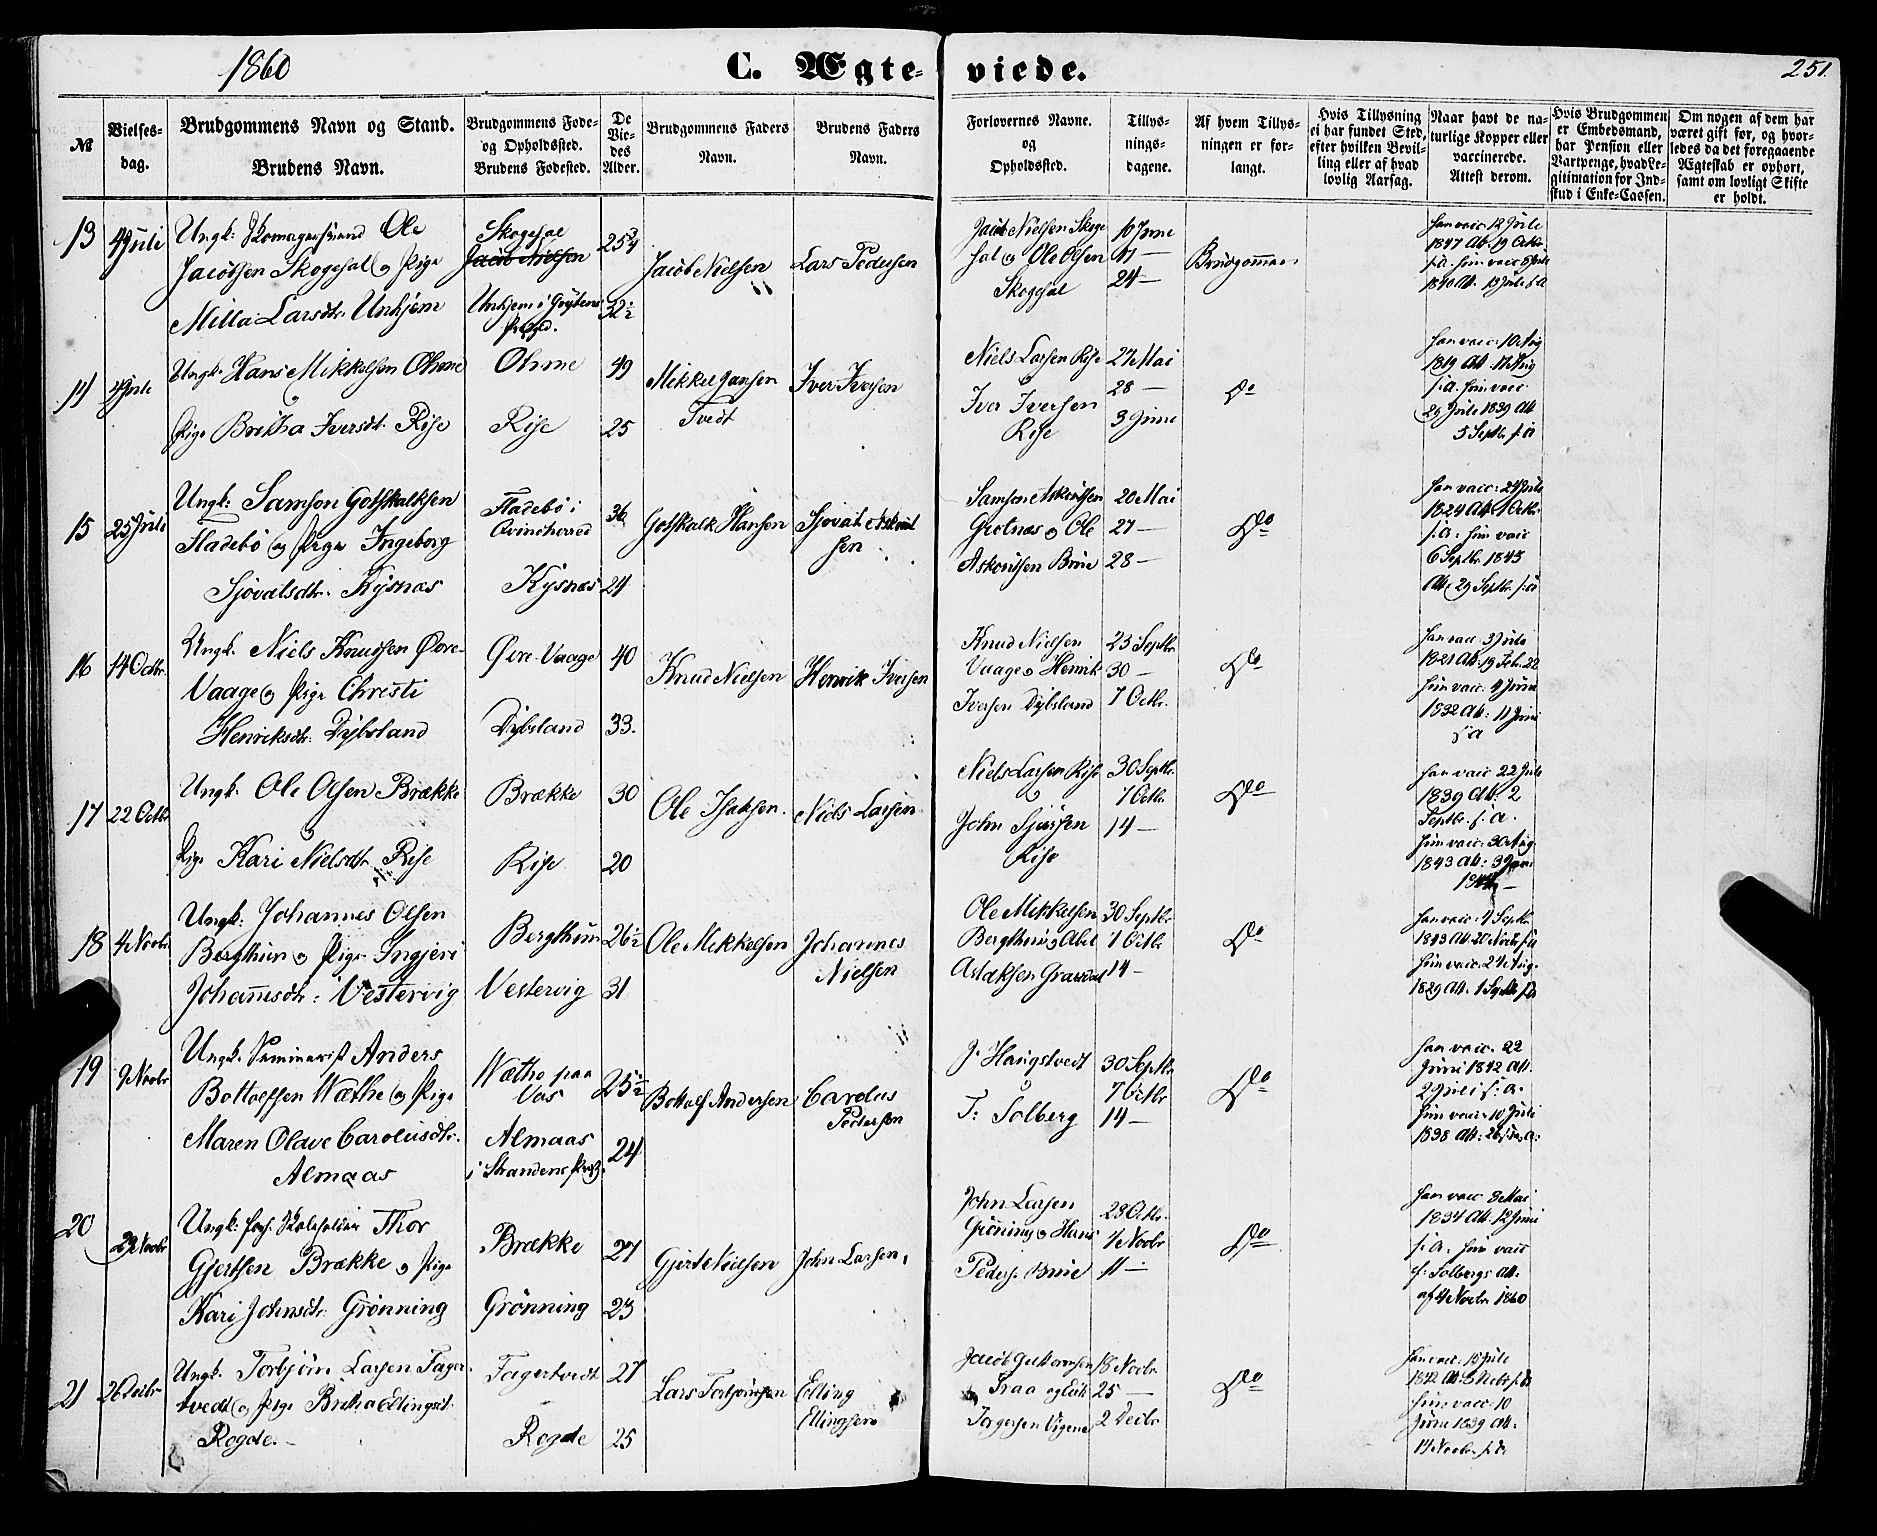 1860
C. Ægte-
viede.
251.
No
Vielses-
dag.
Brudgommens Navn og Stand.
Brudens Navn.
Brudgommens Føde-
og Opholdssted.
Brudens Fødested.
De
Vie-
des
Alder.
Brudgommens Faders
Navn.
Brudens Faders
Navn.
Forlovernes Navne.
og
Opholdssted.
Tillys-
nings-
dagene.
Af hvem Tillys-
ningen er for-
langt.
Hvis Tillysning
ei har fundet Sted,
efter hvilken Bevil-
ling eller af hvad
lovlig Aarsag.
Naar havt de na-
turlige Kopper eller
vaccinerede.
Attest derom.
Hvis Brudgommen
er Embedsmand,
har Pension eller
Vartpenge, hvad Le-
gitimation for Ind-
skud i Enke-Cassen.
Om nogen af dem har
været gift før, og hvor-
ledes da det foregaaende
Ægteskab er ophørt,
samt om lovligt Skifte
er holdt.
13
4 Juli
Ungk: Ole
Jacobsen Skogesal og Pige
Milla Larsdtr. Unhjem
Skogesal
Jacob Nielsen
Unhjem i Grytens
Præstgd.
25 3/4
32 1/2
Jacob Nielsen
Lars Pedersen
Jacob Nielsen Skoge
sal og Ole Olsen
Skogesal
10 Juni
17 —
24 —
Brudgommen
han vacc 12 Juli
1847 Att. 19 Octbr.
s.A. hun vacc
1840 Att. 13 Juli s.A
14
4 Juli
Ungk. Hans Mikkelsen Ohme
Pige Britha Iversdt. Rise
Ohme
Rise
49
25
Mikkel Hansen
Tvedt
Iver Iversen
Niels Larsen Rise
Iver Iversen
Rise
27 Mai
28 —
3 Juni
Do
han vacc: 10 Aug
1819 Att. 17 Aug
s.a. hun vacc
29 Juli 1839 Att
5 Septbr. s.a
15
25 Juli
Ungk: Samson Gotskalksen
Fladebø og Pige Ingeborg
Sjovatsdtr. Kysnæs
Fladebø i
Qvindherred
Kysnæs
36
24
Gotskalk Hansen
Sjovat Askout
sen
Samson Askoutsen
Grotnæs og Ole
Askoutsen Brue
20 Mai
27 —
28 —
Do
han vacc: 21 Juli
1824 Att. 1 Octr.
s.a. hun vacc
6 Septbr. 1843
Att. 29 Septbr. s.a
16
14 Octbr.
Ungk. Niels Knudsen Øvre-
Vaage og Pige Christi
Henriksdtr. Dybsland
Øvre Vaage
Dybsland
40
33.
Knud Nielsen
Henrik Iversen
Knud Nielsen
Vaage og Henrik
Iversen Dybsland
23 Septbr.
30 —
7 Octbr.
Do
han vacc 3 Juli
1821 Att. 19 Febr. 22
hun vacc. 4 Juni
1832 Att: 11 Juni
s a
17
22 Octbr
Ungk. Ole Olsen Brække
Pige Kari Nielsdtr. Rise
Brække
Rise
30
20
Ole Isaksen.
Niels Larsen
Niels Larsen Rise
og
John Sjursen
Rise
30 Septbr.
7 Octbr
14 —
Do
han vacc 22 Juli
1839 Att. 2
Septbr. s.a.
hun vacc: 30 Aug.
1843 Att: 3 Janu
1844 —
18
4 Novbr.
Ungk: Johannes Olsen
Bergthun og Pige Ingjeri
Johannesdtr: Vestervig
Bergthun
Vestervig
26 1/2
31
Ole Mikkelsen
Johannes
Nielsen
Ole Mikkelsen
Bergthun og Abel
Aslaksen Gravdal
30 Septbr
7 Octbr
14 —
Do
han vacc: 1 Septbr
1843 Att. 20 Novbr. s.a
hun vacc. 24 Aug.
1829 Att. 1 Septbr s.a
19
9 Novbr
Ungk. Seminarist Anders
Bottolfsen Wæthe og Pige
Maren Olave Carolusdtr.
Almaas
Wæthe paa
Vos
Almaas
i Strandens Præstg.
25 1/2
24
Bottolf Andersen
Carolus
Pedersen
J. Haugstvedt
og
T: Solberg
30 Septbr
7 Octbr
14 —
Do
han vacc. 22
Juni 1842 Att.
2 Juli s.a.
hun vacc: 10 Juli
1838 Att: 26 s.a.
20
23 Novbr
Ungk: Skoleholder Thor
Gjertsen Brække og Pige
Kari Johnsdtr. Grønning
Brække
Grønning
27
23
Gjert Nielsen
John Larsen
John Larsen
Grønning og Hans
Peders. Brue
28 Octbr.
4 Novbr
11 —
Do
han vacc 8 Mai
1834 Att. 12 Juni
s.a. hun vacc
s. Solbergs Att.
af 4 Novbr. 1860
21
26 Decbr
Ungk. Torbjørn Larsen Fager-
tvedt og Pige Britha Ellingsdt.
Rogde.
Fagertvedt
Rogde
27
25
Lars Torbjørnsen
Elling
Ellingsen
Jacob Guttormsen
Traa og Erik
Torgersen Vigene
18 Novbr
25 —
2 Decbr
Do
han vacc: 15 Juli
1842 Att. s.a.
hun vacc: 10
Juni 1839 Att.
14 Novbr. s.a.